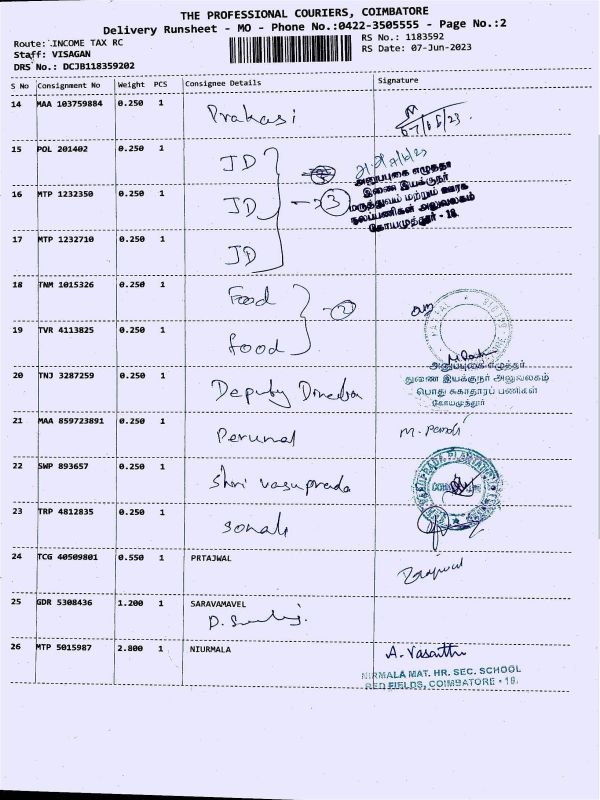 THE PROFESSIONAL COURIERS, COIMBATORE
Delivery Runsheet - MO - Phone No.:0422-3505555 - Page No.:2
Route: INCOME TAX RC
RS No.: 1183592
Staff: VISAGAN
RS Date: 07-Jun-2023
DRS No.: DCJB118359202
S No Consignment No Weight PCS Consignee Details Signature
14 MAA 103759884 0.250 1 Prakasi
07/06/23
15 POL 201402 0.250 1 JD
அனுப்புகை எழுத்தர்
இணை இயக்குநர்
16 MTP 1232350 0.250 1 JD 3
மருத்துவம் மற்றும் ஊரக
நலப்பணிகள் அலுவலகம்
கோயமுத்தூர் - 18.
17 MTP 1232710 0.250 1 JD
18 TNM 1015326 0.250 1 Food 2
19 TVR 4113825 0.250 1 food
அனுப்புகை எழுத்தர்
20 TNJ 3287259 0.250 1 Deputy Director
துணை இயக்குநர் அலுவலகம்
பொது சுகாதாரப் பணிகள்
கோயமுத்தூர்
21 MAA 859723891 0.250 1 Perumal M. Pandi
22 SWP 893657 0.250 1 Shri vasuprada
23 TRP 4812835 0.250 1 Sonali
24 TCG 40509801 0.550 1 PRTAJWAL
25 GDR 5308436 1.200 1 SARAVAMAVEL
26 MTP 5015987 2.800 1 NIURMALA A. Vasanthi
NIRMALA MAT. HR. SEC. SCHOOL
RED FIELDS, COIMBATORE - 18.